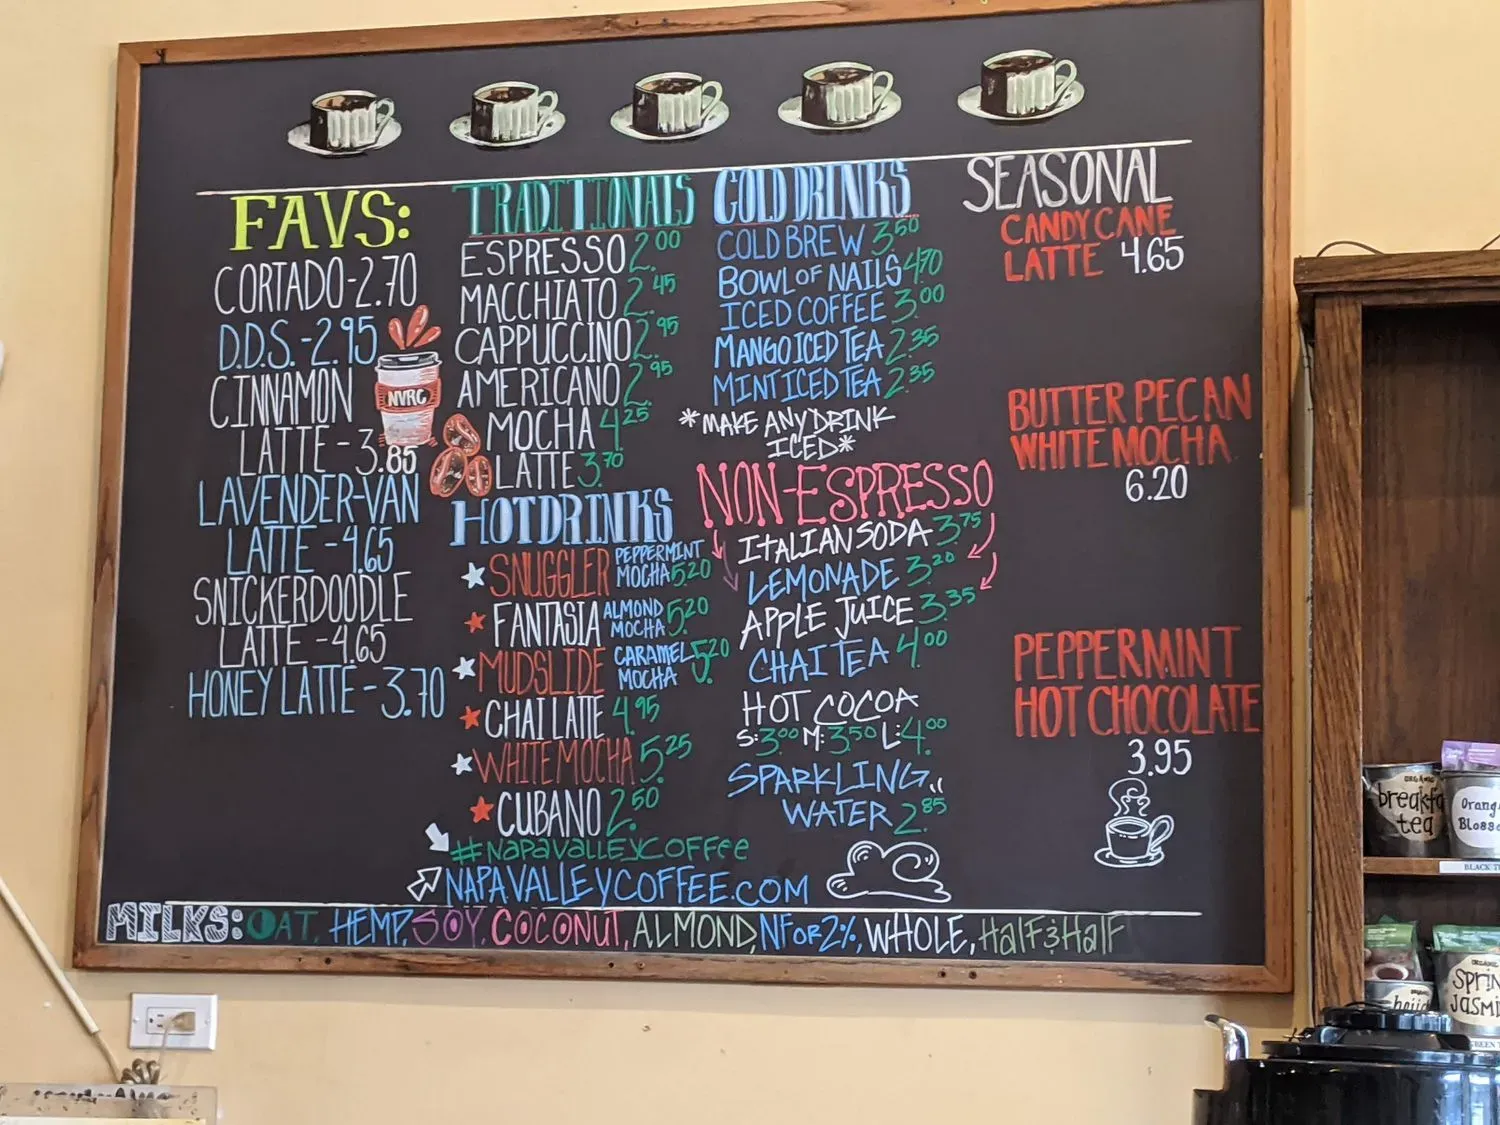 FAVS:
CORTADO-2.70
D.D.S.-2.95
CINNAMON
LATTE-3.85
LAVENDER-VAN
LATTE-4.65
SNICKERDOODLE
LATTE-4.65
HONEY LATTE-3.70
NVRC
TRADITIONALS
ESPRESSO 2.00
MACCHIATO 2.45
CAPPUCCINO 2.95
AMERICANO 2.95
MOCHA 4.25
LATTE 3.70
HOT DRINKS
SNUGGLER PEPPERMINT MOCHA 5.20
FANTASIA ALMOND MOCHA 5.20
MUDSLIDE CARAMEL MOCHA 5.20
CHAI LATTE 4.95
WHITE MOCHA 5.25
CUBANO 2.50
#NAPAVALLEYCOFFEE
NAPAVALLEYCOFFEE.COM
COLD DRINKS
COLD BREW 3.50
BOWL OF NAILS 4.70
ICED COFFEE 3.00
MANGO ICED TEA 2.35
MINT ICED TEA 2.35
*MAKE ANY DRINK
ICED*
NON-ESPRESSO
ITALIAN SODA 3.75
LEMONADE 3.20
APPLE JUICE 3.35
CHAI TEA 4.00
HOT COCOA
S:3.00 M:3.50 L:4.00
SPARKLING
WATER 2.85
SEASONAL
CANDY CANE
LATTE 4.65
BUTTER PECAN
WHITE MOCHA
6.20
PEPPERMINT
HOT CHOCOLATE
3.95
MILKS: OAT, HEMP, SOY, COCONUT, ALMOND, NF OR 2%, WHOLE, HALF & HALF
ORGANIC
breakfa
tea
Orang
Blosso
BLACK T
SPRIN
JASMI
GREEN T